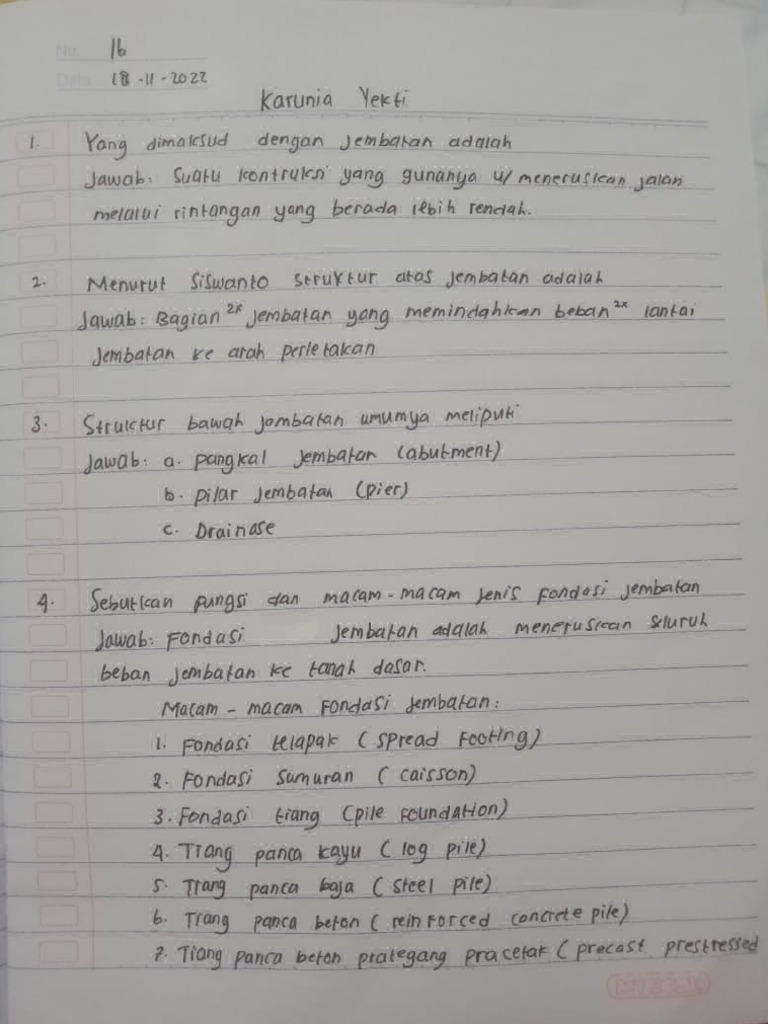 No. 16
Date. 18-11-2022
Karunia Yekti
1. Yang dimaksud dengan jembatan adalah
Jawab: Suatu kontruksi yang gunanya u/ meneruskan jalan
melalui rintangan yang berada lebih rendah.
2. Menurut Siswanto struktur atas jembatan adalah
Jawab: Bagian 2x jembatan yang memindahkan beban 2x lantai
jembatan ke arah perletakan
3. Struktur bawah jembatan umumya meliputi
Jawab: a. pangkal jembatan (abutment)
b. pilar jembatan (pier)
c. Drainase
4. Sebutkan fungsi dan macam-macam jenis fondasi jembatan
Jawab: Fondasi jembatan adalah meneruskan seluruh
beban jembatan ke tanah dasar.
Macam-macam Fondasi jembatan:
1. Fondasi telapak (spread footing)
2. Fondasi sumuran (caisson)
3. Fondasi tiang (pile foundation)
4. Tiang panca kayu (log pile)
5. Tiang panca baja (steel pile)
6. Tiang panca beton (reinforced concrete pile)
7. Tiang panca beton prategang pracetak (precast prestressed